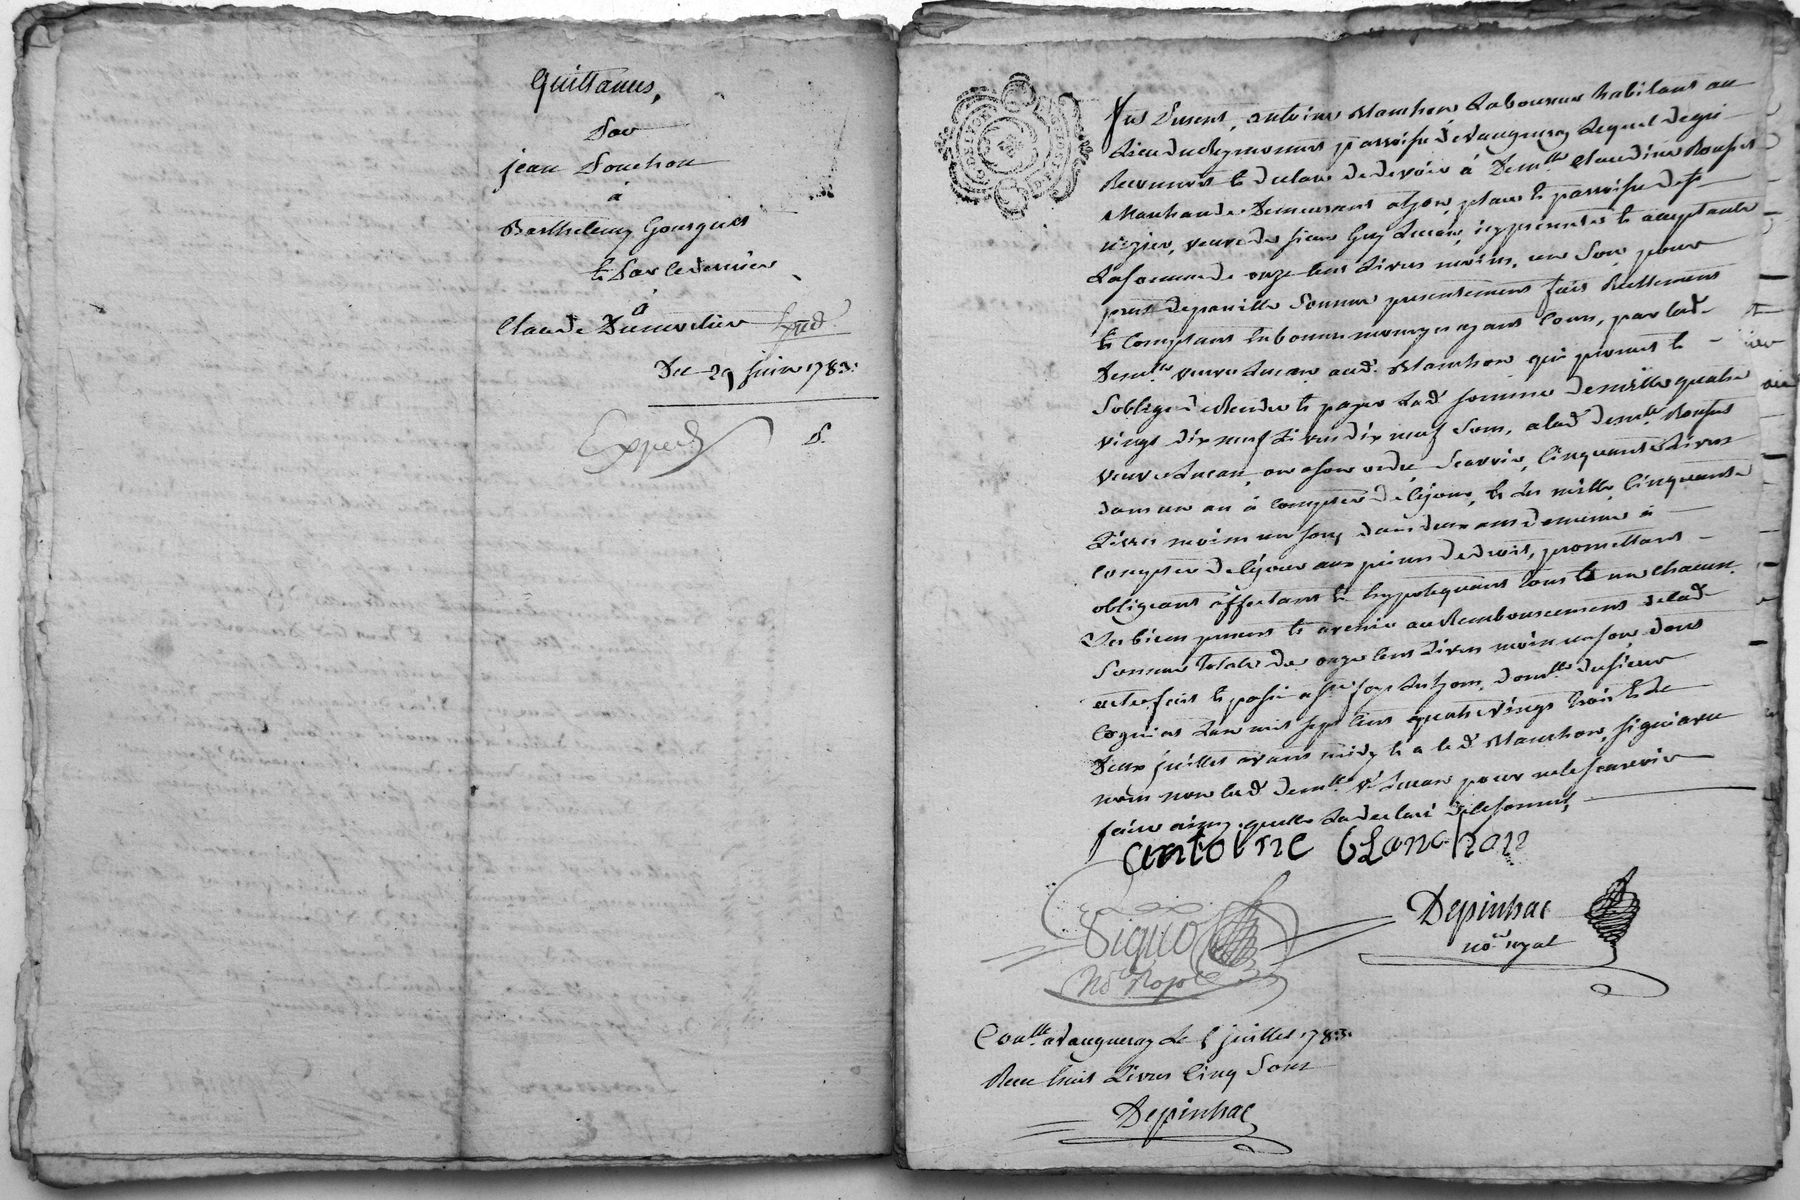 Quittances,
Par
jean Souchon
à
Barthelemy Gourgues
& Par ce dernier
à
Claude Dumortier Exped
Du 29 juin 1783.
Exped
Fut Present, antoine Blanchon Laboureur habitant au
Lieu du Reymonnet parroisse de Vaugneray Lequel de gré
Reconnoit et declare de devoir à Demlle Claudine Rousset
Marchande Demeurant a Lyon, place et parroisse de St
nizier, veuve de sieur Guy Lucan, icy presente et acceptante
La somme de onze cent Livres moins, un Sou, pour
prest de pareille Somme presentement fait Reellement
et Comptant en bonne monnoye ayant Cours, par lad.
Demlle veuve Lucan aud. Blanchon qui promet et
S'oblige de Rendre et payer Lad. somme de mille quatre
vingt dix neuf Livres dix neuf Sous, a lad. demlle Rousset
veuve Lucan, ou a son ordre Scavoir, Cinquante Livres
dans un an à compter de ce jour, et les mille Cinquante
Livres moins un sou, dans deux ans de même à
compter de ce jour aux peines de droit, promettant
obligeant affectant et hypotequant tous et un chacun
Ses biens present et avenir au Remboursement de lad.
Somme totale de onze cent Livres moins un sou, dont
acte fait et passé a Lyon, dans
L'an mil sept cent quatre vingt trois et le
Deux juillet avant midy et a led. Blanchon, signé avec
nous non lad. demlle Ve Lucan pour ne le scavoir
faire ainsy quelle La declaré de ce sommée,
antoine blanchon
Depinhac
nore royal
Nore Royal
Conlle a Vaugneray Le 5 juillet 1783.
Recu huit Livres Cinq Sous
Depinhac